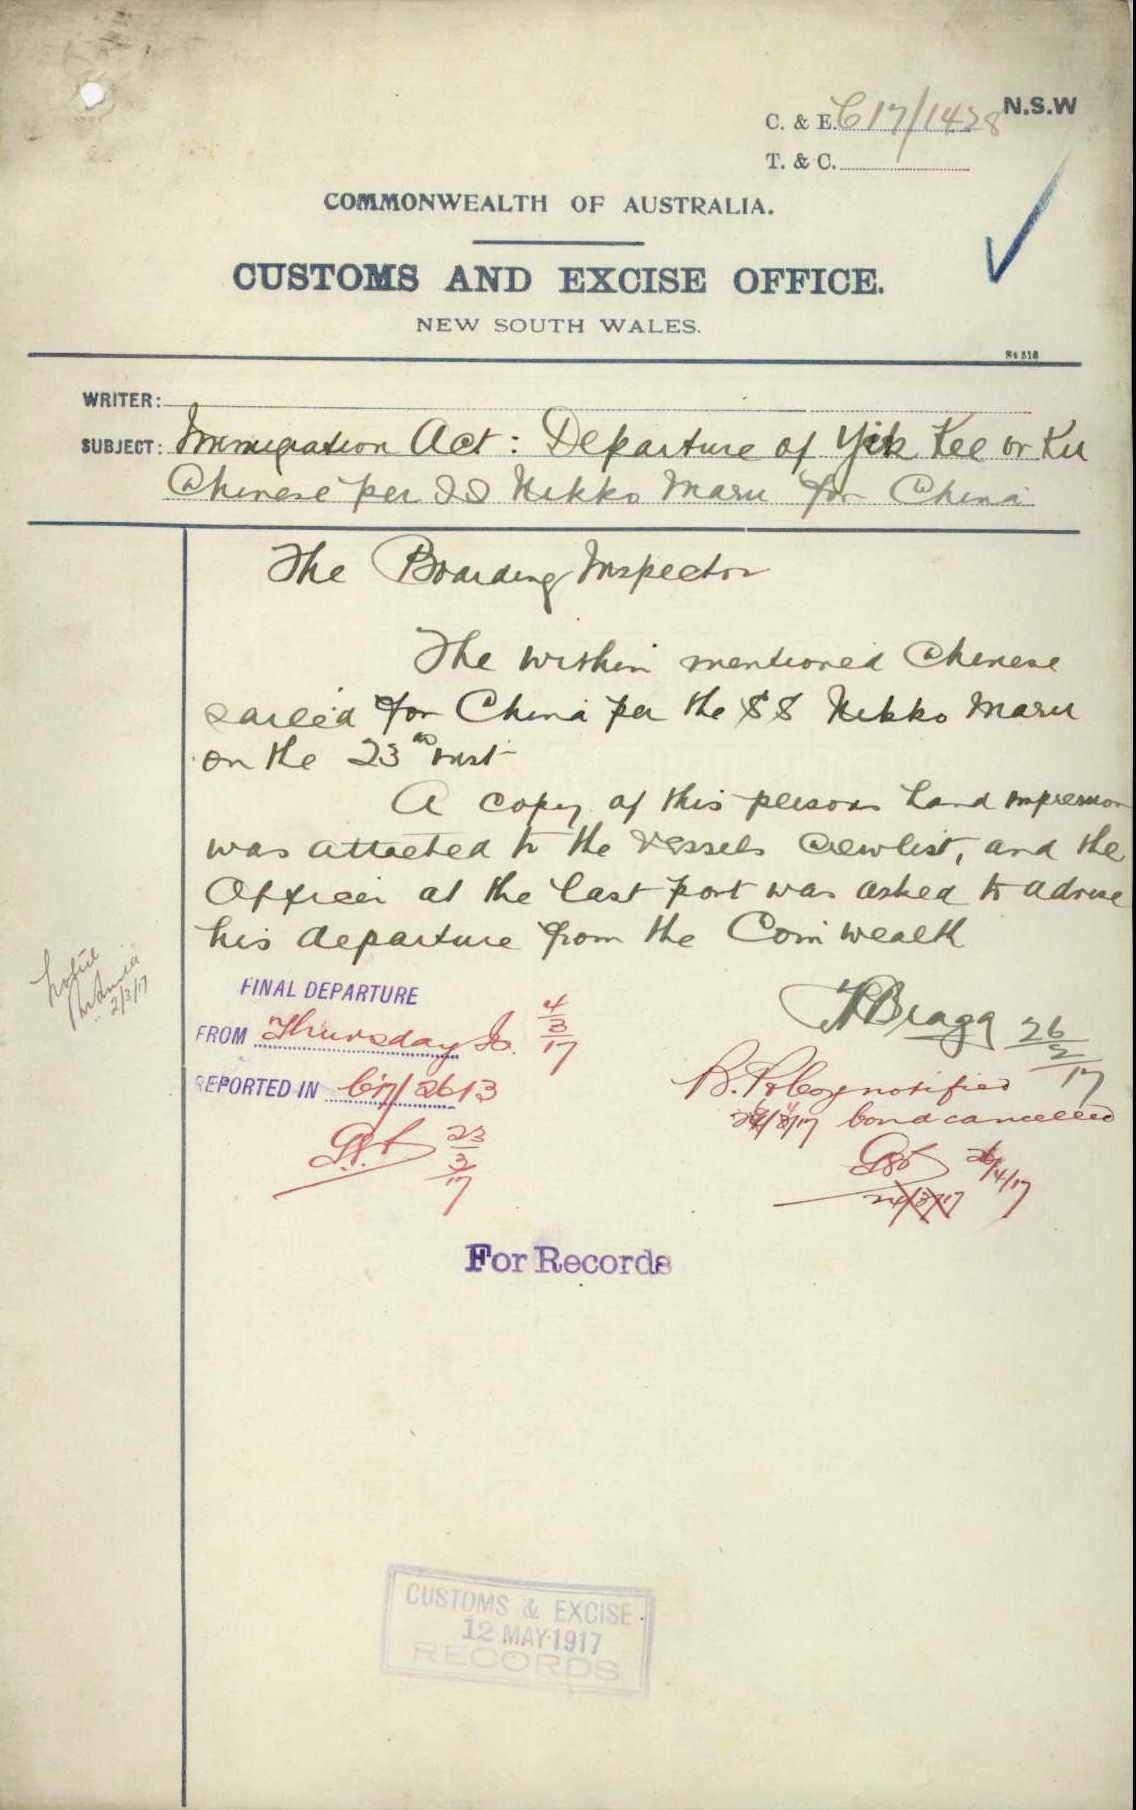 C. & E. C17/1428 N.S.W
T. & C.
COMMONWEALTH OF AUSTRALIA.
CUSTOMS AND EXCISE OFFICE.
NEW SOUTH WALES.
WRITER:
SUBJECT: Immigration Act: Departure of Yik Kee or Ku
Chinese per SS Nikko Maru for China
The Boarding Inspector
The within mentioned Chinese
sailed for China per the SS Nikko Maru
on the 23rd inst
A copy of this persons hand impression
was attached to the vessels crewlist, and the
Officer at the last port was asked to advise
his departure from the Com'wealth
2/3/17
FINAL DEPARTURE
FROM Thursday Is. 4/3/17
REPORTED IN C17/2613
23/3/17
H Bragg 26/2/17
notified
bond cancelled
26/4/17
24/3/17
For Records
CUSTOMS & EXCISE
12 MAY 1917
RECORDS